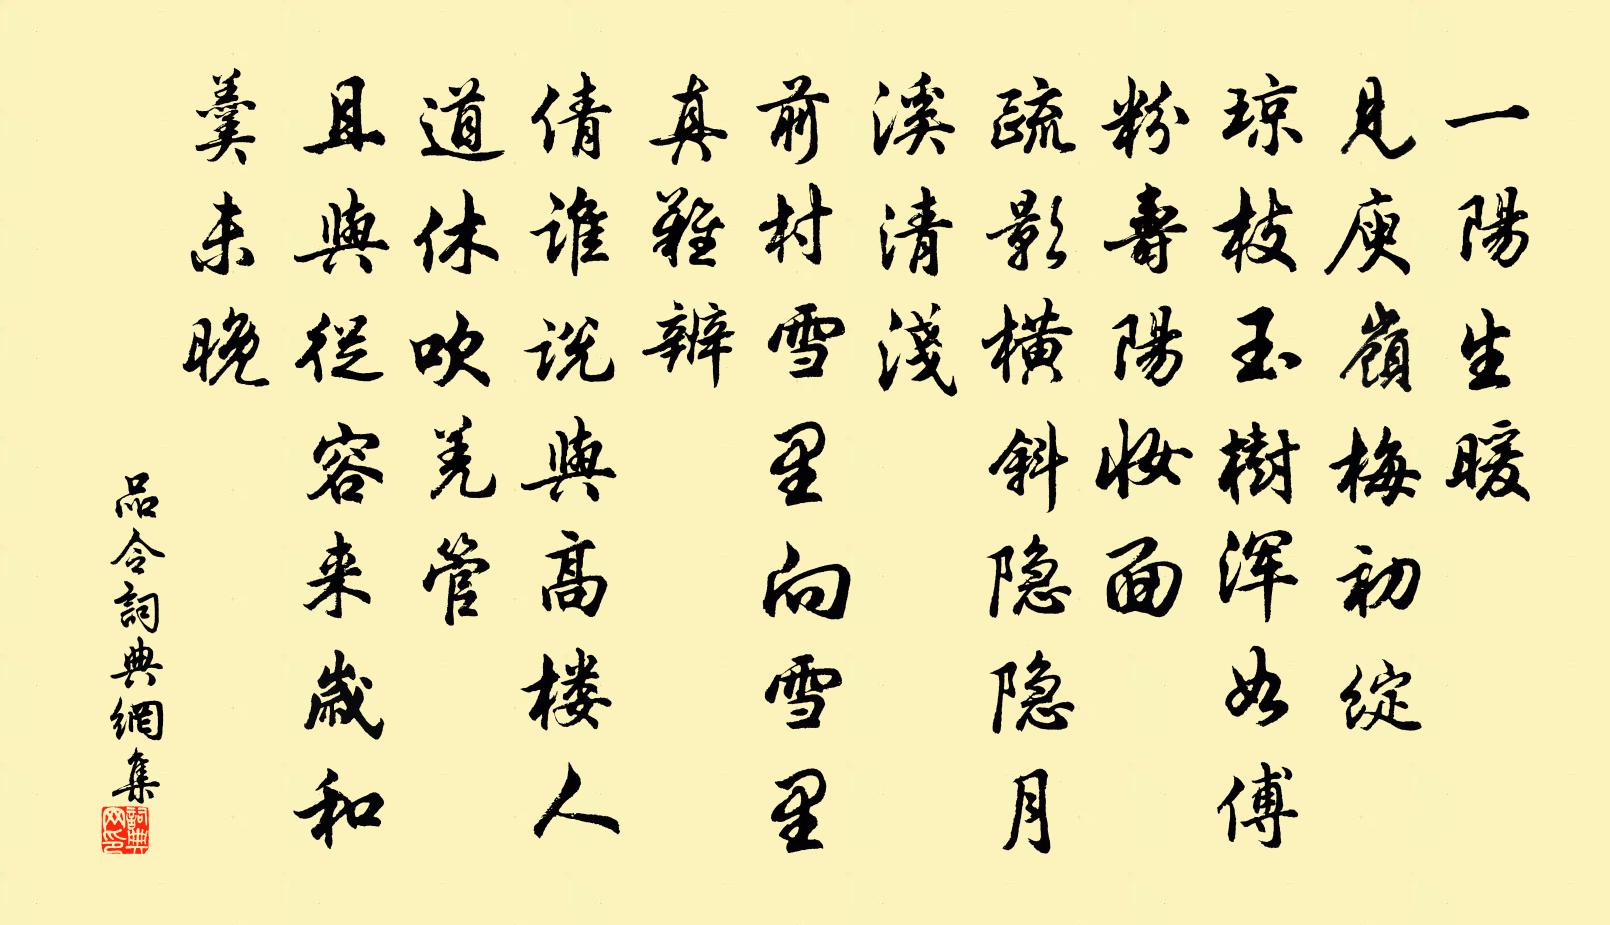 一陽生暖
見庾嶺梅初綻
琼枝玉樹浑如傅
粉壽陽妆面
疏影横斜隐隐月
溪清淺
前村雪里向雪里
真難辨
倩谁说與高楼人
道休吹羌管
且與從容来歲和
羹未晚
品令詞典網集
詞典网印